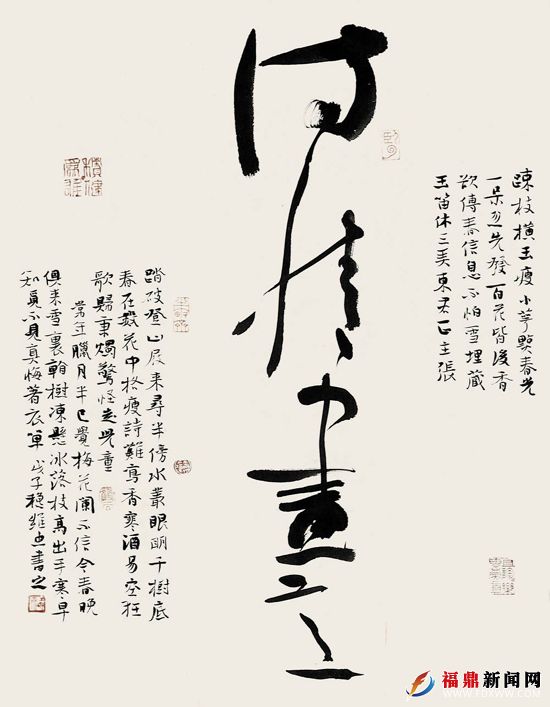 诗情畫意
疎枝横玉瘦小萼點春光
一朵忽先發百花皆後香
欲傳春信息不怕雪埋藏
玉笛休三弄東君正主張
踏破登山屐來尋半傍水叢眼明千樹底
春在數花中格瘦詩難寫香寒酒易空狂
歌歸秉燭驚怪走兒童
常年臘月半已覺梅花闌不信今春晚
俱來雪裏看樹凍懸冰落枝高出手寒早
知覓不見真悔著衣單 戊子 書之
福鼎新闻网
WWW.FDXWW.COM